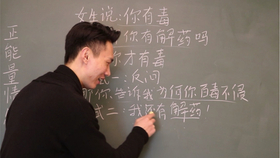 正能量情
女生说:你有毒
你有解药吗
你才有毒
式一:反问
那你告诉我为何你百毒不侵
式二:我还有解药!